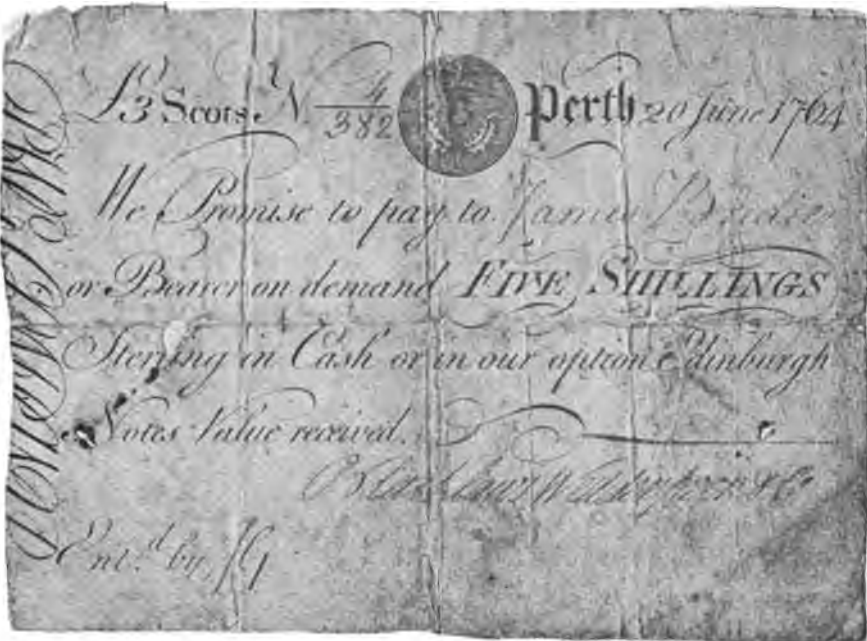 £3 Scots N. 4/382 Perth 20 June 1764
We Promise to pay to James
or Bearer on demand FIVE SHILLINGS
Sterling in Cash or in our option Edinburgh
Notes Value received.
& Co
Ent.d by JG